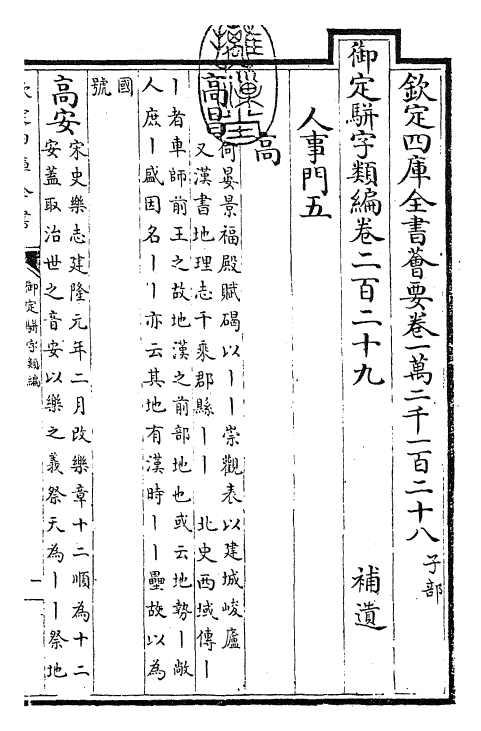 欽定四庫全書薈要卷一萬二千一百二十八 子部
御定駢字類編卷二百二十九 補遺
人事門五
高
高昌 何晏景福殿賦碣以丨丨崇觀表以建城峻廬
又漢書地理志千乘郡縣丨丨 北史西域傳丨
丨者車師前王之故地漢之前部地也或云地勢丨敞
人庶丨盛因名丨丨亦云其地有漢時丨丨壘故以為
國
號
高安 宋史樂志建隆元年二月改樂章十二順為十二
安蓋取治世之音安以樂之義祭天為丨丨祭地
御定駢字類編
一